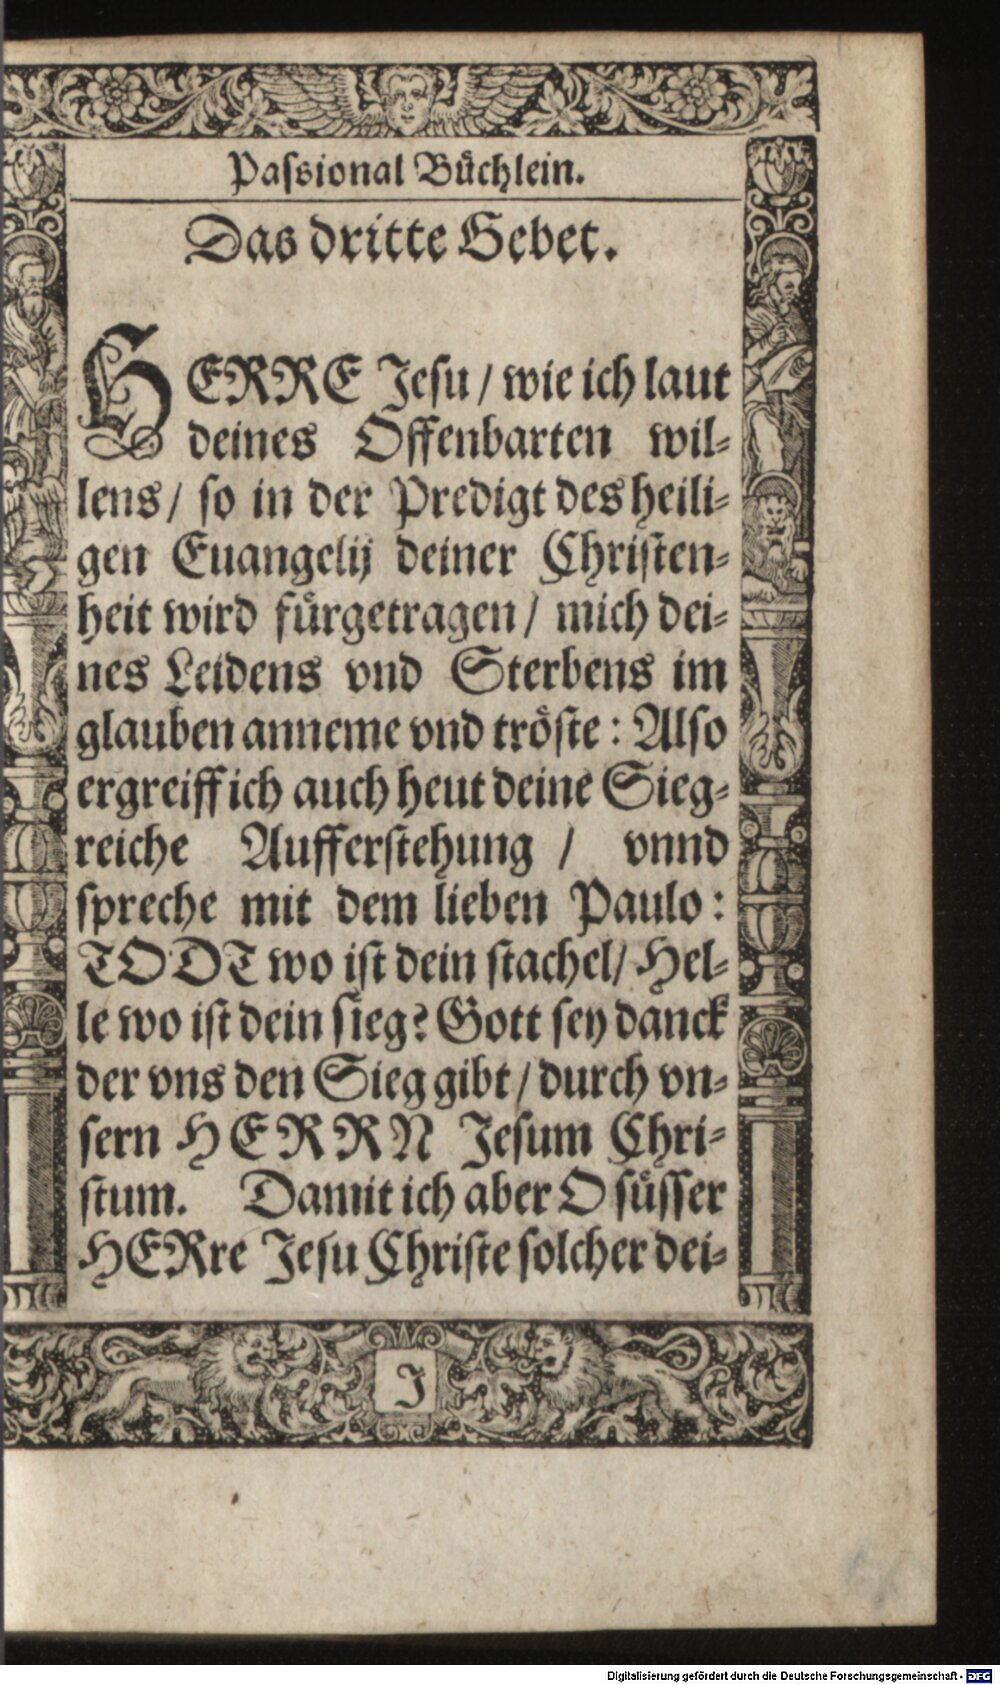 Paſsional Bůchlein.
Das dritte Gebet.
HERRE Jeſu / wie ich laut
deines Offenbarten wil⸗
lens / ſo in der Predigt des heili⸗
gen Euangelij deiner Chriſten⸗
heit wird fůrgetragen / mich dei⸗
nes Leidens vnd Sterbens im
glauben anneme vnd trőſte : Alſo
ergreiff ich auch heut deine Sieg⸗
reiche Aufferſtehung / vnnd
ſpreche mit dem lieben Paulo :
TODT wo iſt dein ſtachel / Hel⸗
le wo iſt dein ſieg? Gott ſey danck
der vns den Sieg gibt / durch vn⸗
ſern HERRN Jeſum Chri⸗
ſtum. Damit ich aber O ſůſſer
HERre Jeſu Chriſte ſolcher dei⸗
J
Digitalisierung gefördert durch die Deutsche Forschungsgemeinschaft - DFG